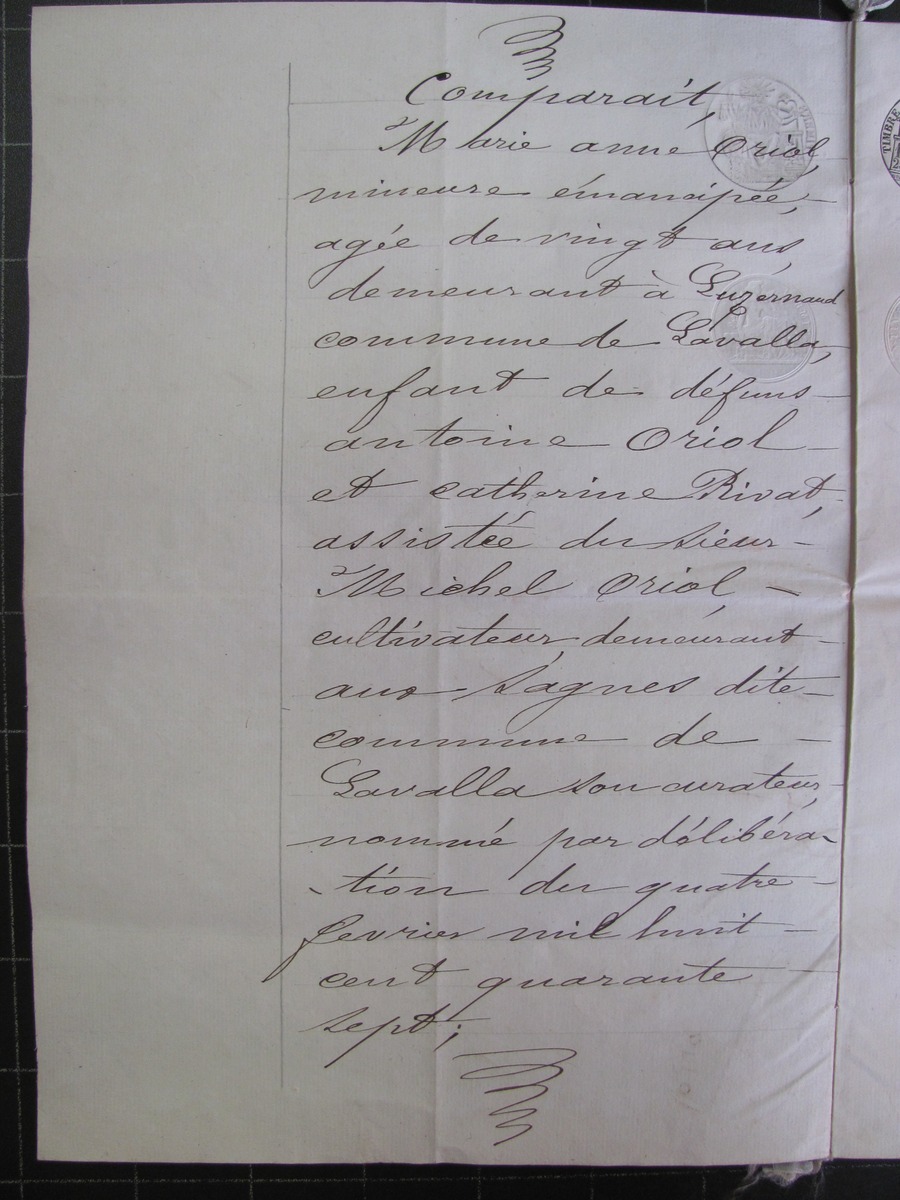 Comparait,
Marie anne Oriol,
mineure émancipée,
agée de vingt ans
demeurant à Luzernaud
commune de Lavalla,
enfant de défuns
antoine Oriol
et catherine Rivat,
assistée du sieur
Michel Oriol
cultivateur, demeurant
aux Sagnes dite
commune de
Lavalla son curateur,
nommé par délibéra-
-tion du quatre
fevrier mil huit
cent quarante
sept;
TIMBRE